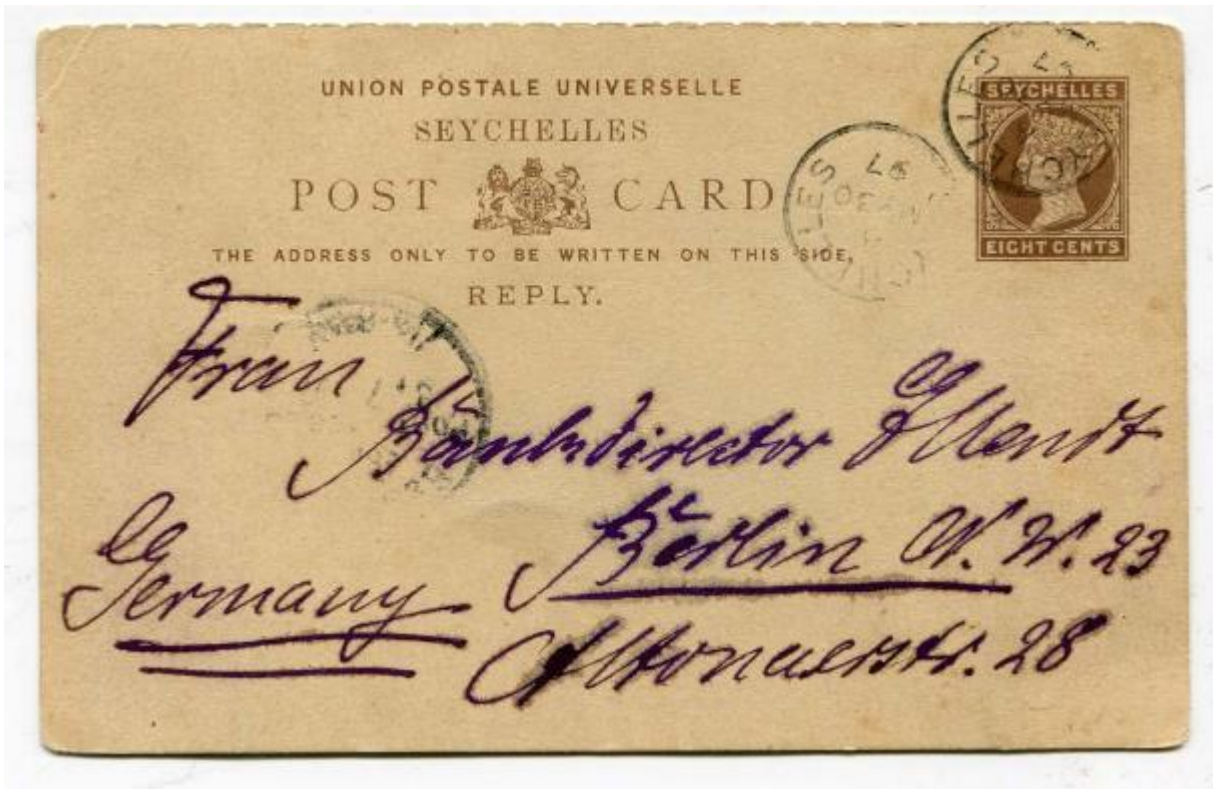 UNION POSTALE UNIVERSELLE
SEYCHELLES
POST CARD
THE ADDRESS ONLY TO BE WRITTEN ON THIS SIDE,
REPLY.
SEYCHELLES
EIGHT CENTS
97
Frau
Bankdirector
Berlin N.W. 23
Germany
Altonaerstr. 28